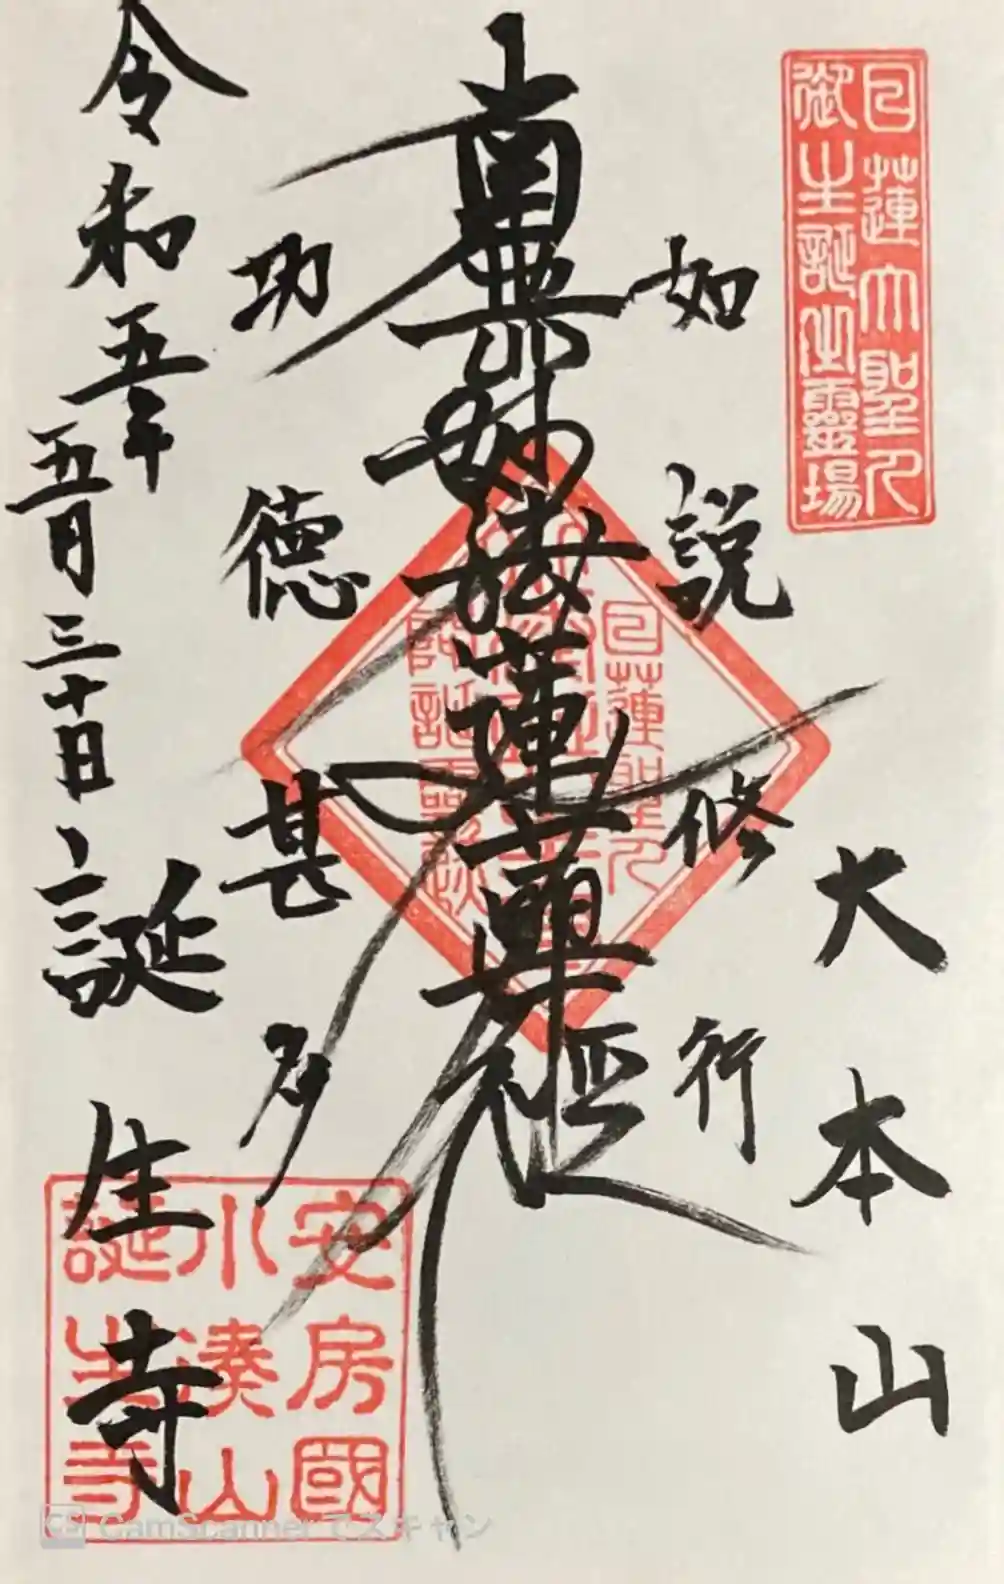 日蓮大聖人
御生誕之霊場
大本山
如説修行
南無妙法蓮華経
功徳甚多
令和五年
五月三十日
誕生寺
日蓮聖人
御誕霊蹟
安房國
小湊山
誕生寺
CamScannerでスキャン